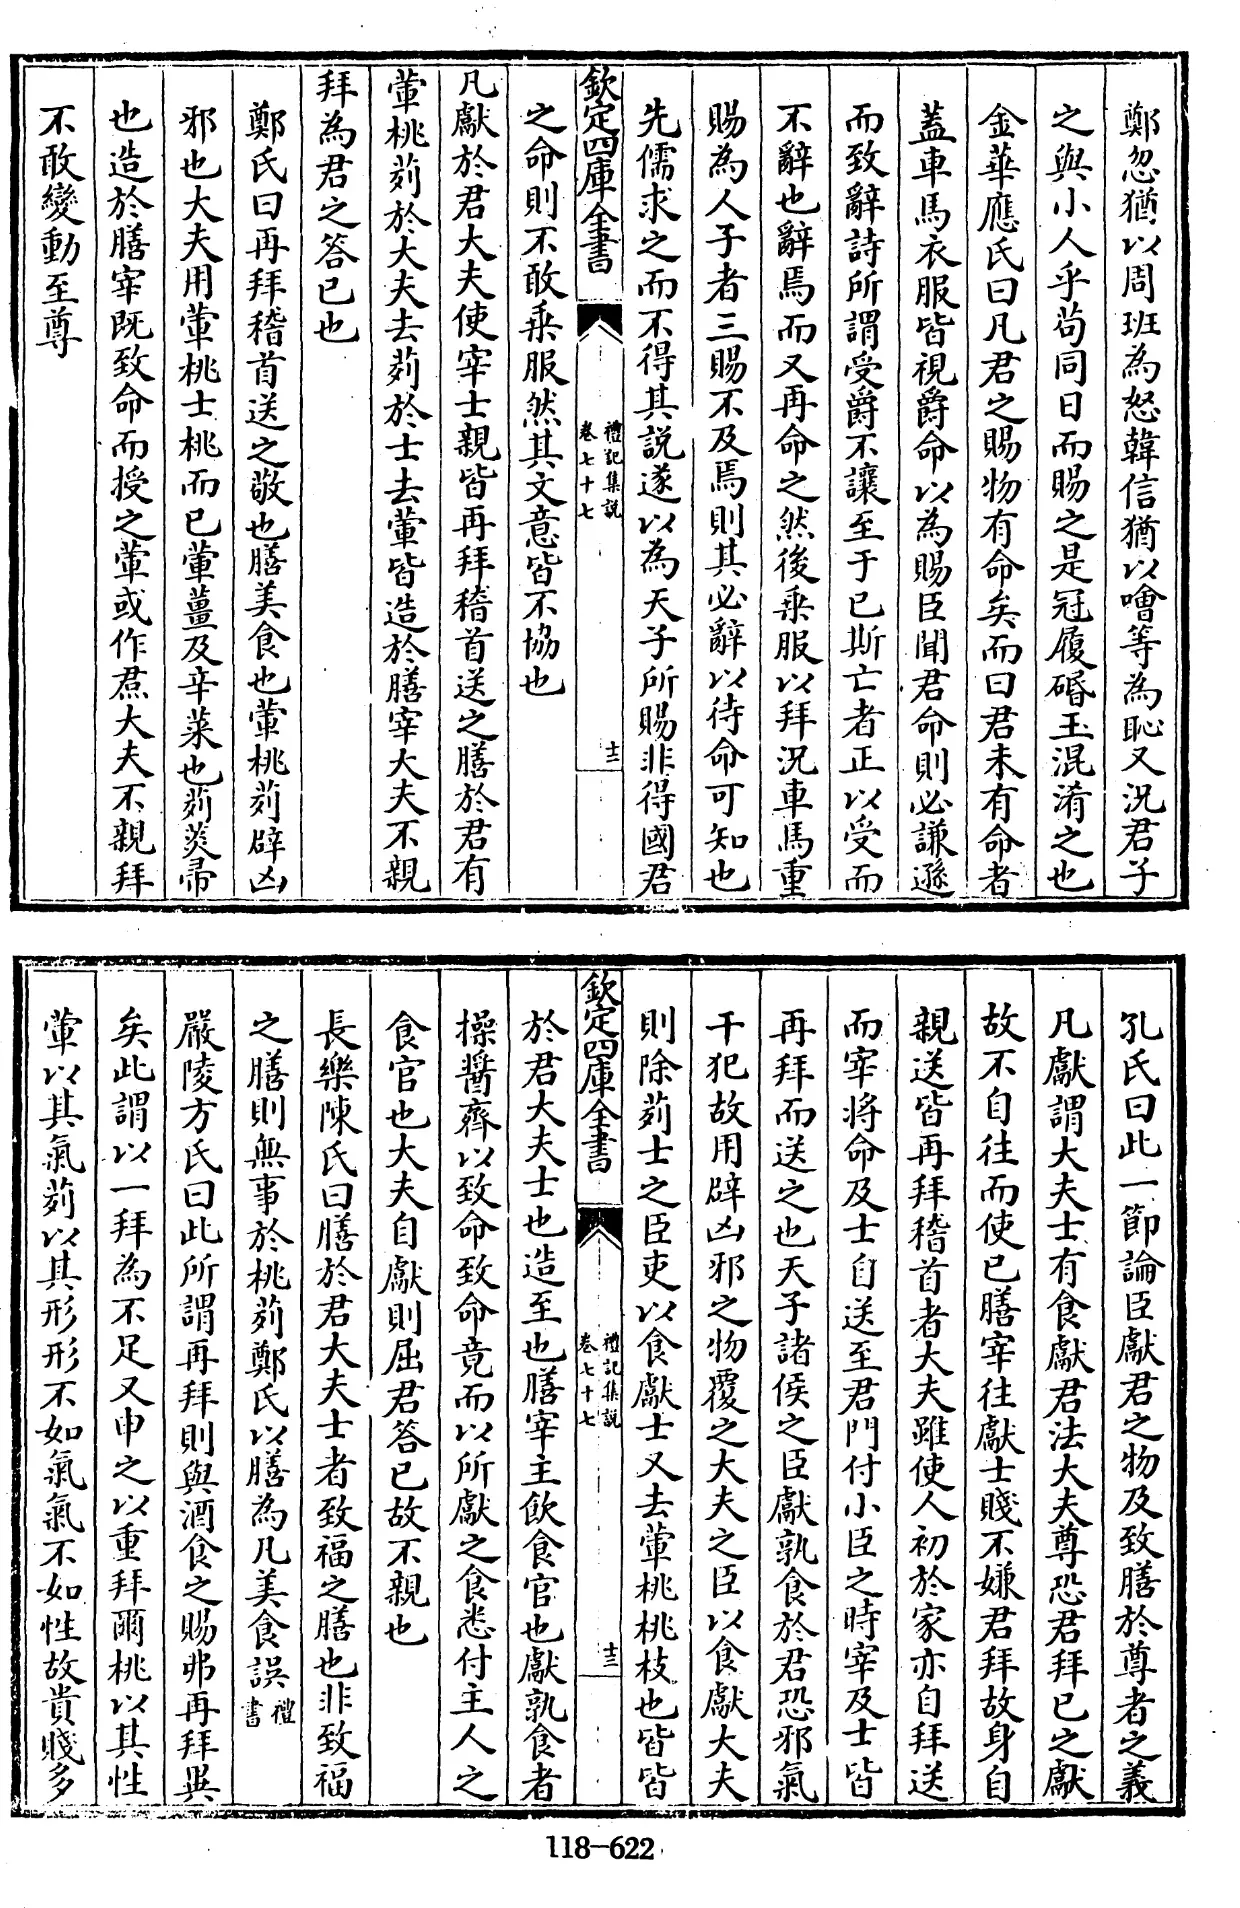 鄭忽猶以周班為怒韓信猶以噲等為恥又況君子
之與小人乎茍同日而賜之是冠履碈玉混淆之也
金華應氏曰凡君之賜物有命矣而曰君未有命者
蓋車馬衣服皆視爵命以為賜臣聞君命則必謙遜
而致辭詩所謂受爵不讓至于已斯亡者正以受而
不辭也辭焉而又再命之然後乗服以拜況車馬重
賜為人子者三賜不及焉則其必辭以待命可知也
先儒求之而不得其説遂以為天子所賜非得國君
欽定四庫全書
禮記集説
卷七十七
十二
之命則不敢乗服然其文意皆不協也
凡獻於君大夫使宰士親皆再拜稽首送之膳於君有
葷桃茢於大夫去茢於士去葷皆造於膳宰大夫不親
拜為君之答已也
鄭氏曰再拜稽首送之敬也膳美食也葷桃茢辟凶
邪也大夫用葷桃士桃而已葷薑及辛菜也茢菼帚
也造於膳宰既致命而授之葷或作焄大夫不親拜
不敢變動至尊
孔氏曰此一節論臣獻君之物及致膳於尊者之義
凡獻謂大夫士有食獻君法大夫尊恐君拜已之獻
故不自往而使已膳宰往獻士賤不嫌君拜故身自
親送皆再拜稽首者大夫雖使人初於家亦自拜送
而宰將命及士自送至君門付小臣之時宰及士皆
再拜而送之也天子諸侯之臣獻孰食於君恐邪氣
干犯故用辟凶邪之物覆之大夫之臣以食獻大夫
則除茢士之臣吏以食獻士又去葷桃桃枝也皆皆
欽定四庫全書
禮記集説
卷七十七
十三
於君大夫士也造至也膳宰主飲食官也獻孰食者
操醬齊以致命致命竟而以所獻之食悉付主人之
食官也大夫自獻則屈君答已故不親也
長樂陳氏曰膳於君大夫士者致福之膳也非致福
之膳則無事於桃茢鄭氏以膳為凡美食誤禮書
嚴陵方氏曰此所謂再拜則與酒食之賜弗再拜異
矣此謂以一拜為不足又申之以重拜爾桃以其性
葷以其氣茢以其形形不如氣氣不如性故貴賤多
118-622